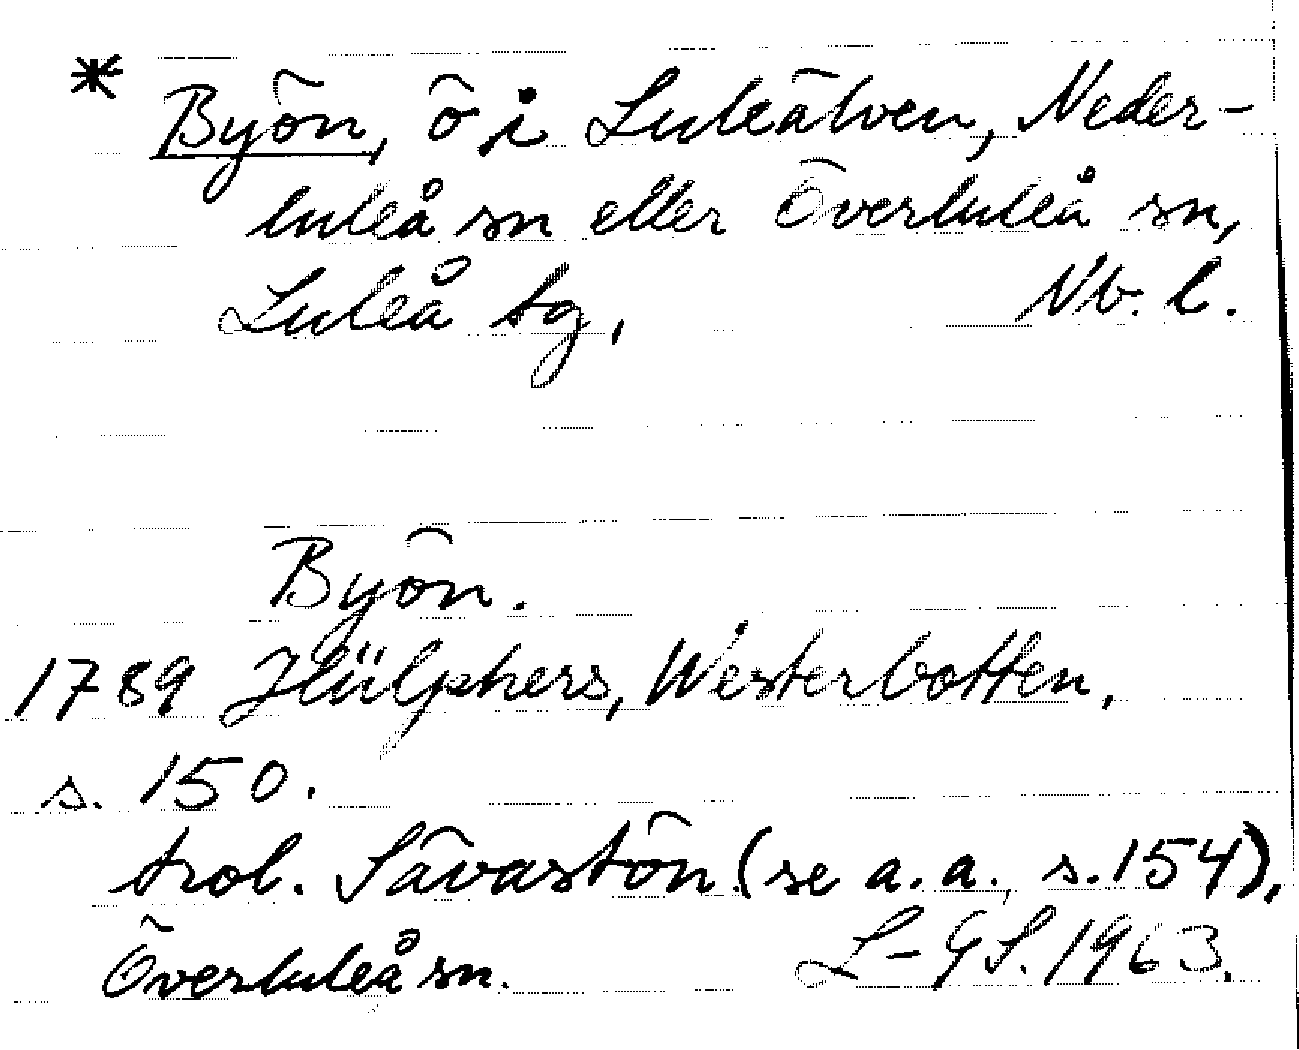 * Byön, ö i Luleälven, Neder-
luleå sn eller Överluleå sn,
Luleå tg, Nb. l.
Byön.
1789 Hülphers, Westerbotten,
s. 150.
trol. Sävastön (se a.a., s. 154),
Överluleå sn. L-GS. 1963.